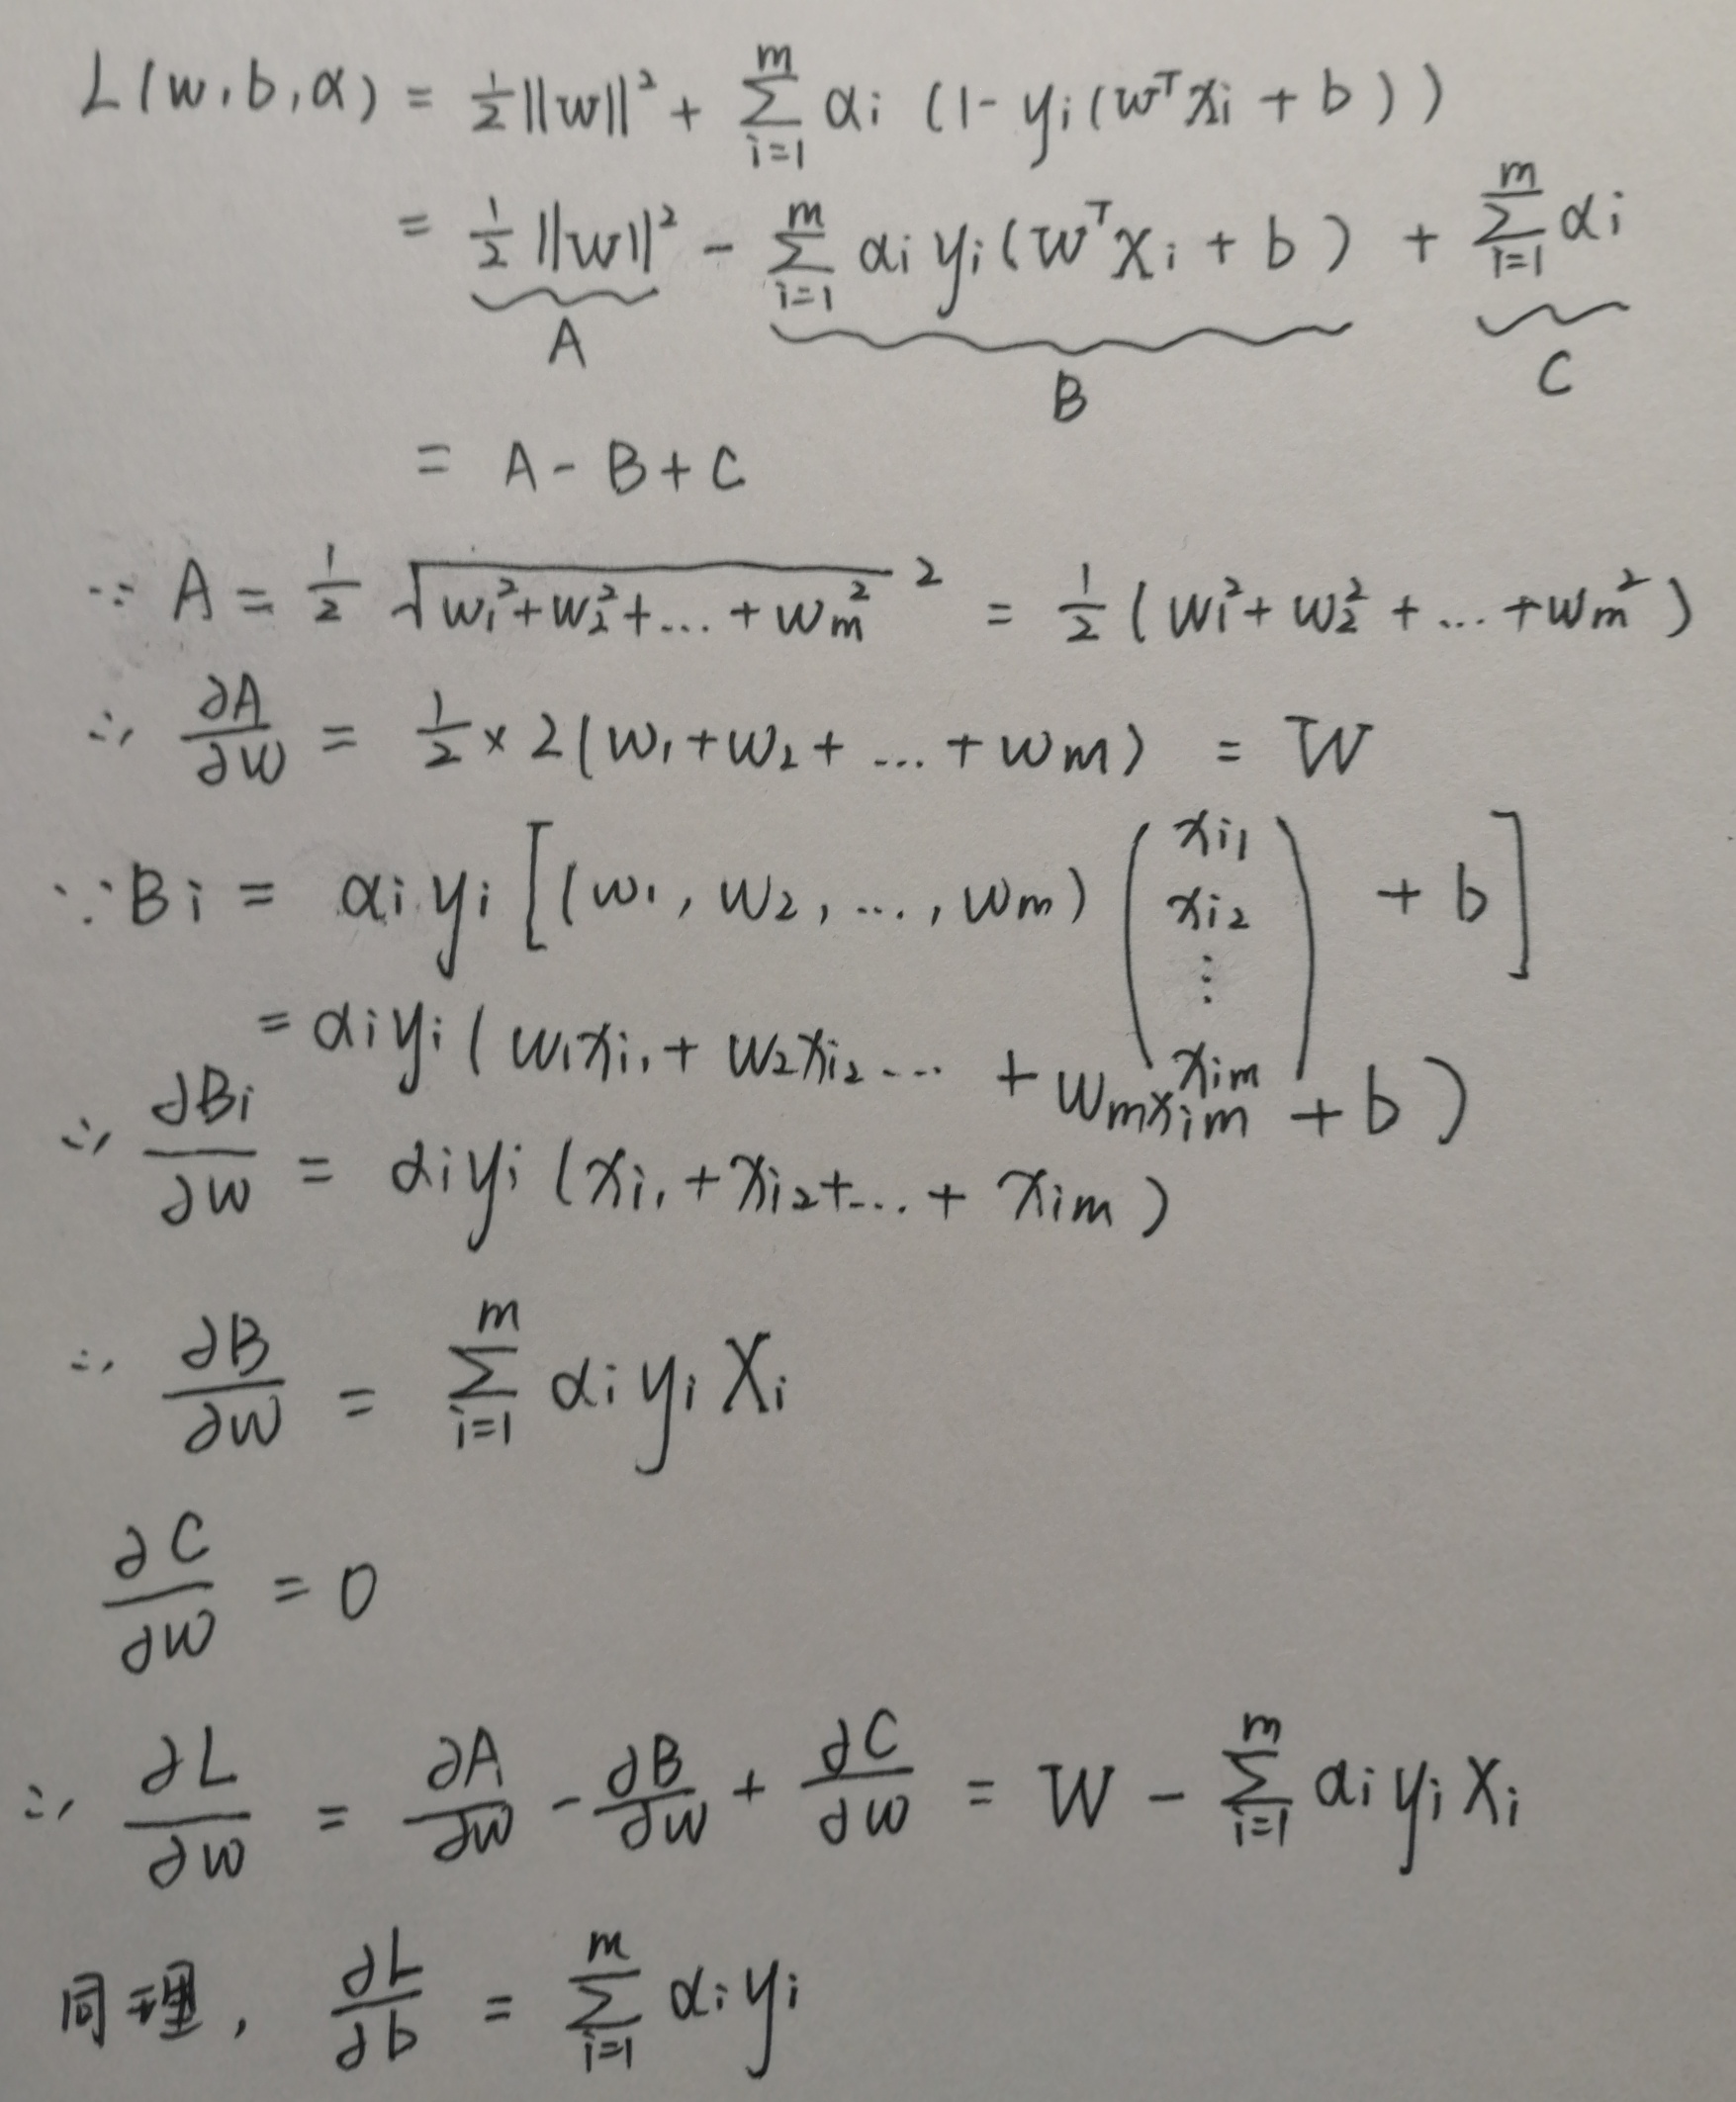 L(w,b,α) = 1/2||w||² + Σ_{i=1}^{m} αi (1 - yi(wᵀxi + b))
= 1/2||w||² - Σ_{i=1}^{m} αi yi(wᵀxi + b) + Σ_{i=1}^{m} αi
A B C
= A - B + C
∵ A = 1/2 √(w₁²+w₂²+...+wm²)² = 1/2 (w₁²+w₂²+...+wm²)
∴ ∂A/∂w = 1/2 × 2(w₁+w₂+...+wm) = W
∵ Bi = αi yi [(w₁, w₂, ..., wm) (xi1 xi2 ⋮ xim) + b]
= αi yi (w₁xi₁ + w₂xi₂ ... + wmxim + b)
∴ ∂Bi/∂w = αi yi (xi₁ + xi₂+...+ xim)
∴ ∂B/∂w = Σ_{i=1}^{m} αi yi Xi
∂C/∂w = 0
∴ ∂L/∂w = ∂A/∂w - ∂B/∂w + ∂C/∂w = W - Σ_{i=1}^{m} αi yi Xi
同理, ∂L/∂b = Σ_{i=1}^{m} αi yi